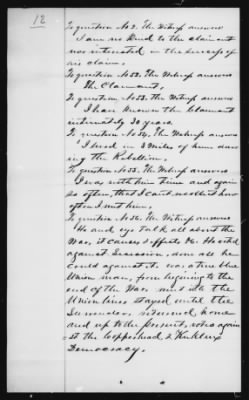 12
To question No 2. The Witness answers
I am no Kind to the claimant
nor interested in the success of
his claim.
To question No 52. The Witness answers
The Claimant,
To question No 53. The Witness answers
I have known the Claimant
intimately 30 years.
To question No 54. The Witness answers
I lived in 3 Miles of him dur
ing the Rebellion.
To question No 55. The Witness answers
I was with him time and again
so often, that I cant recollect how
often I met him.
To question No 56. The Witness answers
He and eye Talk all about the
War, it causes & effects &c. He voted
against Secession, done all he
could against it. was a true blue
Union man, from begining to the
end of the War. went into the
Union lines stayed until the
Surrender, returned home
and up to the present, votes again
st the Copperhead & Kuklux
Democracy.